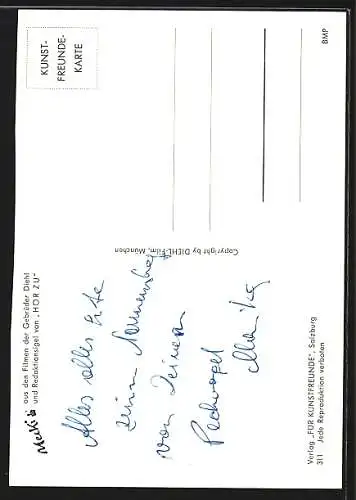 KUNST-
FREUNDE-
KARTE
Mecki
aus den Filmen der Gebrüder Diehl
und Redaktionsigel von „HÖR ZU"
Alles alles Gute
zum Namenstag
von Deinem
Pechvogel
Copyright by DIEHL-Film, München
BMP
Verlag „FÜR KUNSTFREUNDE", Salzburg
311 Jede Reproduktion verboten